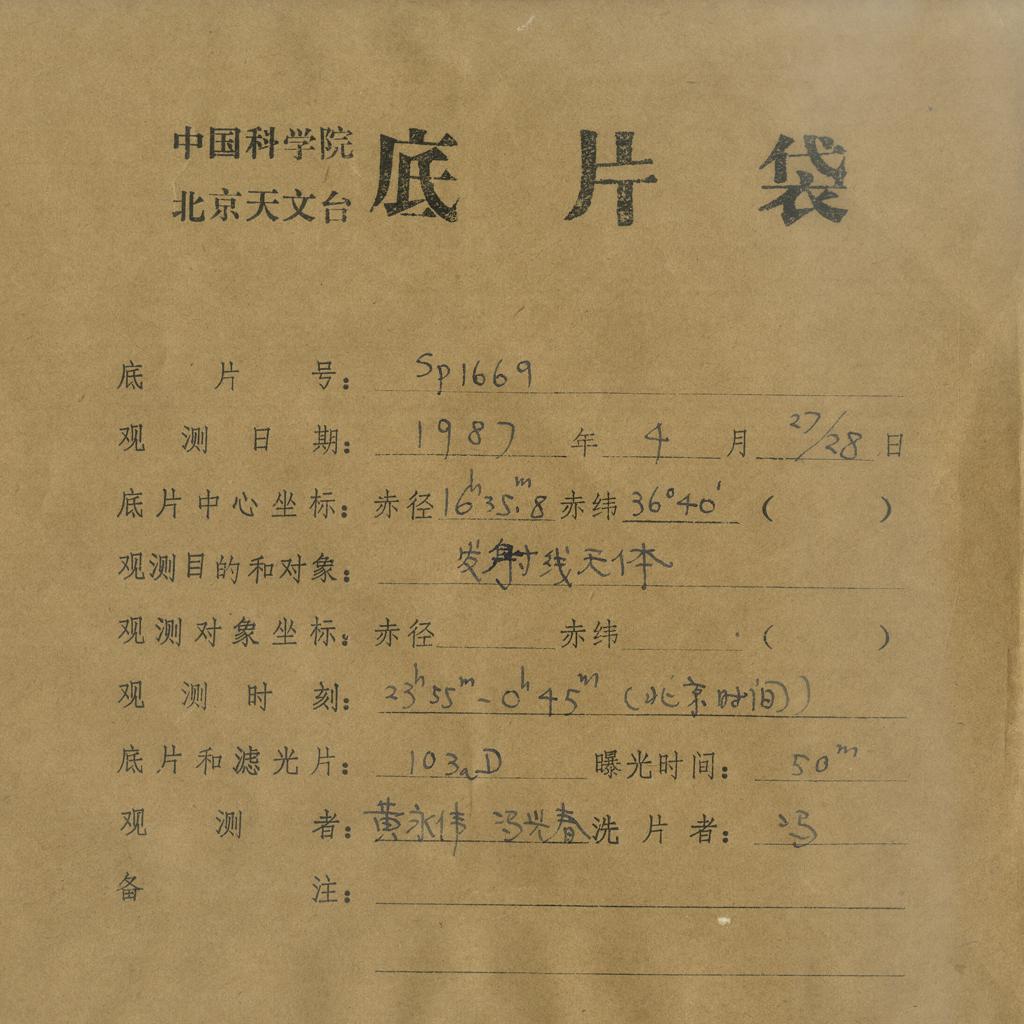 中国科学院
北京天文台
底片袋
底片号：Sp1669
观测日期：1987年4月27/28日
底片中心坐标：赤径16ʰ35ᵐ.8赤纬36°40′（　　）
观测目的和对象：发射线天体
观测对象坐标：赤径　　赤纬　　（　　）
观测时刻：23ʰ55ᵐ-0ʰ45ᵐ（北京时间）
底片和滤光片：103aD　曝光时间：50ᵐ
观测者：黄永伟 冯兴春 洗片者：冯
备注：